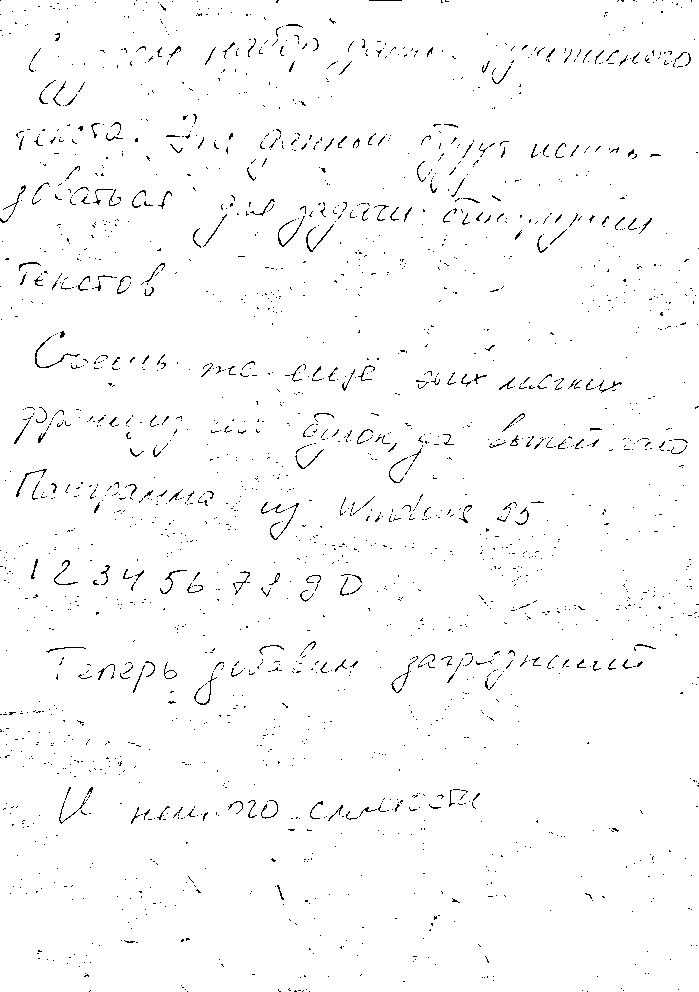 набор данных рукописного
текста. Эти данные будут исполь-
зоваться для задачи бинаризации
текстов
Съешь же ещё этих мягких
французских булок, да выпей чаю
Панграмма из Windows 95
1 2 3 4 5 6 7 8 9 0
Теперь добавим загрязнений
И немного смятости